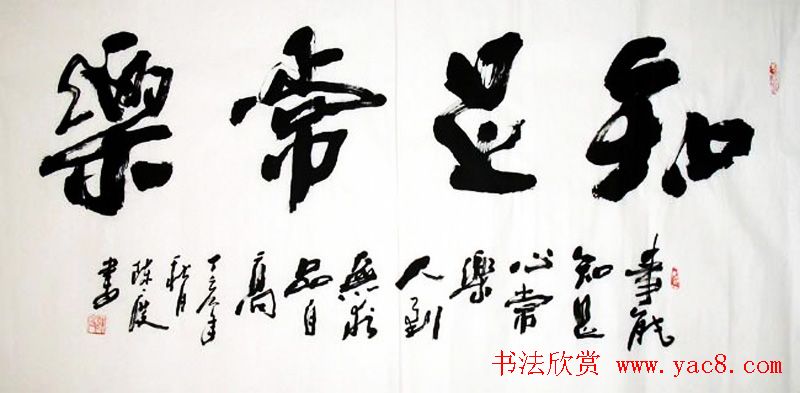 知足常樂
事能
知足
心常
樂
人到
無求
品自
高
丁亥年
秋月
陳
書
书法欣赏 www.yac8.com